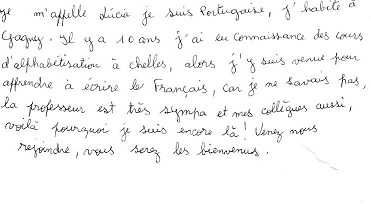 je m'appelle Lúcia je suis Portugaise, j'habite à
Gagny. Il y a 10 ans j'ai eu connaissance des cours
d'alphabétisation à chelles, alors j'y suis venue pour
apprendre à écrire le Français, car je ne savais pas,
la professeur est très sympa et mes collègues aussi,
voilà pourquoi je suis encore là! Venez nous
rejoindre, vous serez les bienvenus.